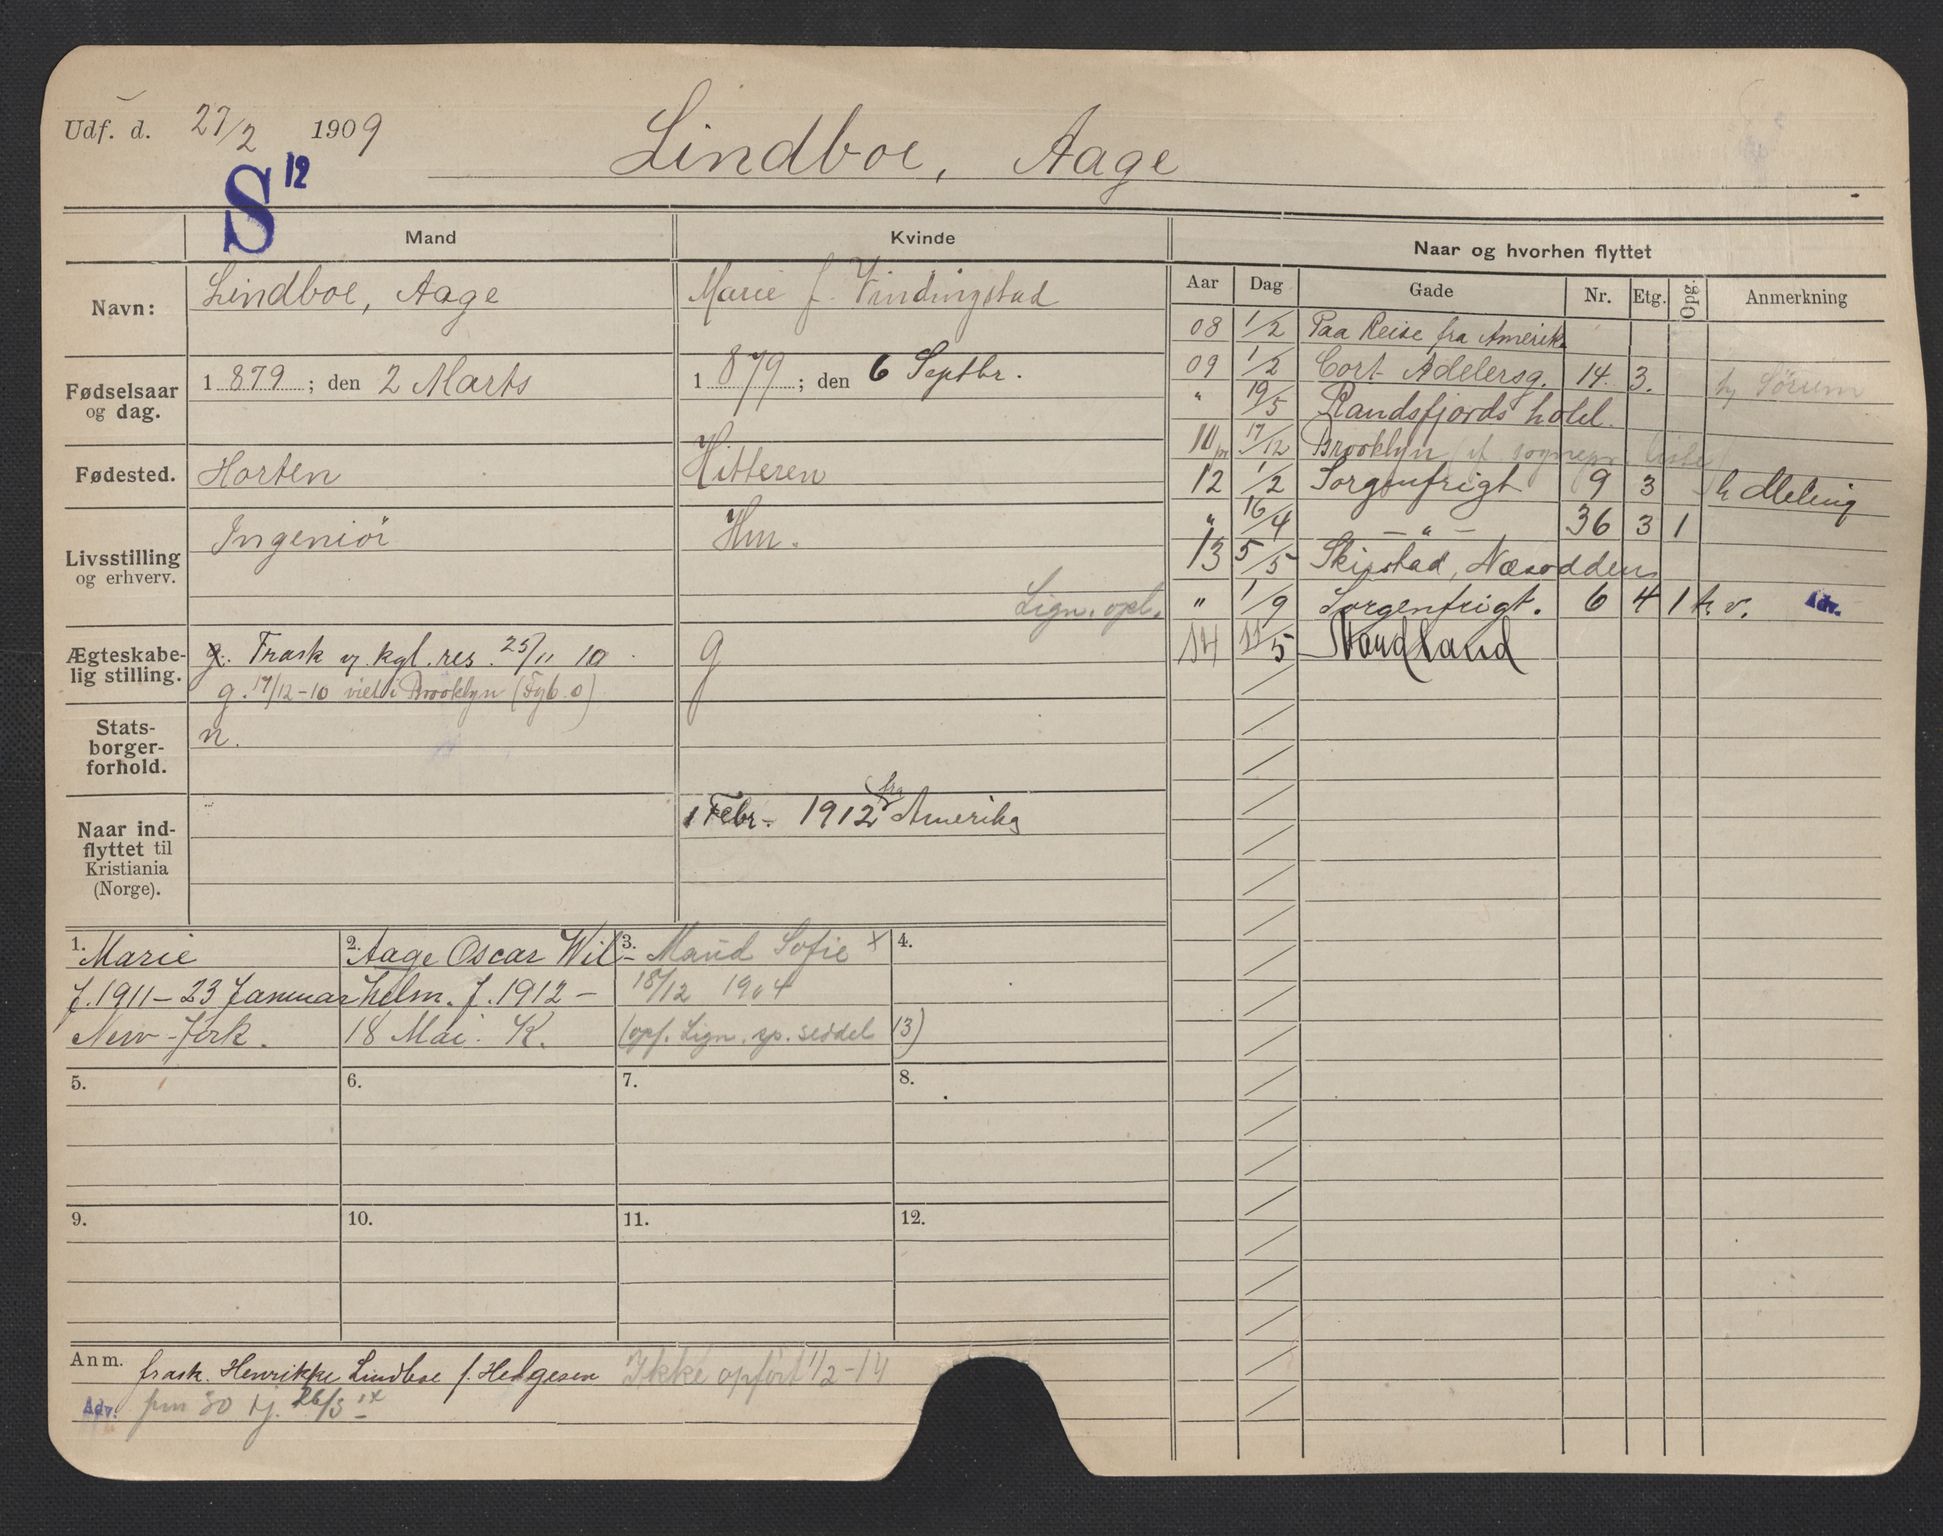 Udf. d. 27/2 1909
Lindboe, Aage
S 12
Mand
Kvinde
Naar og hvorhen flyttet
Navn:
Lindboe, Aage
Marie f. Vindingstad
Aar Dag Gade Nr. Etg. Opg. Anmerkning
08 1/2 Paa Reise fra Amerika
Fødselsaar og dag.
1879; den 2 Marts
1879; den 6 Septbr.
09 1/2 Cort Adelersg. 14. 3. Sørum
" 19/5 Randsfjords hotel.
10 17/12 Brooklyn
Fødested.
Horten
Hitteren
12 1/2 Sorgenfrigt 9 3 h Meling
" 16/4 — " — 36 3 1
Livsstilling og erhverv.
Ingeniör
Hm.
13 5/5 Skistad, Næsodden
Lign. opl.
" 1/9 Sorgenfrigt. 6 4 1 h. v. Adv.
Ægteskabe-
lig stilling.
g. Frask v. kgl. res. 25/11 10
g. 17/12-10 viet i Brooklyn (Fgb. o)
g
14 11/5
Stats-
borger-
forhold.
n.
Naar ind-
flyttet til
Kristiania
(Norge).
1 Febr. 1912 fra Amerika
1. Marie
f. 1911 – 23 Januar
New-York.
2. Aage Oscar Wil-
helm. f. 1912 –
18 Mai. K.
3. Maud Sofie x
18/12 1904
(opf. Lign. sp. seddel 13)
4.
5. 6. 7. 8.
9. 10. 11. 12.
Anm. frask. Henrikke Lindboe f. Helgesen Ikke opført 1/2-14
Adv. 26/3